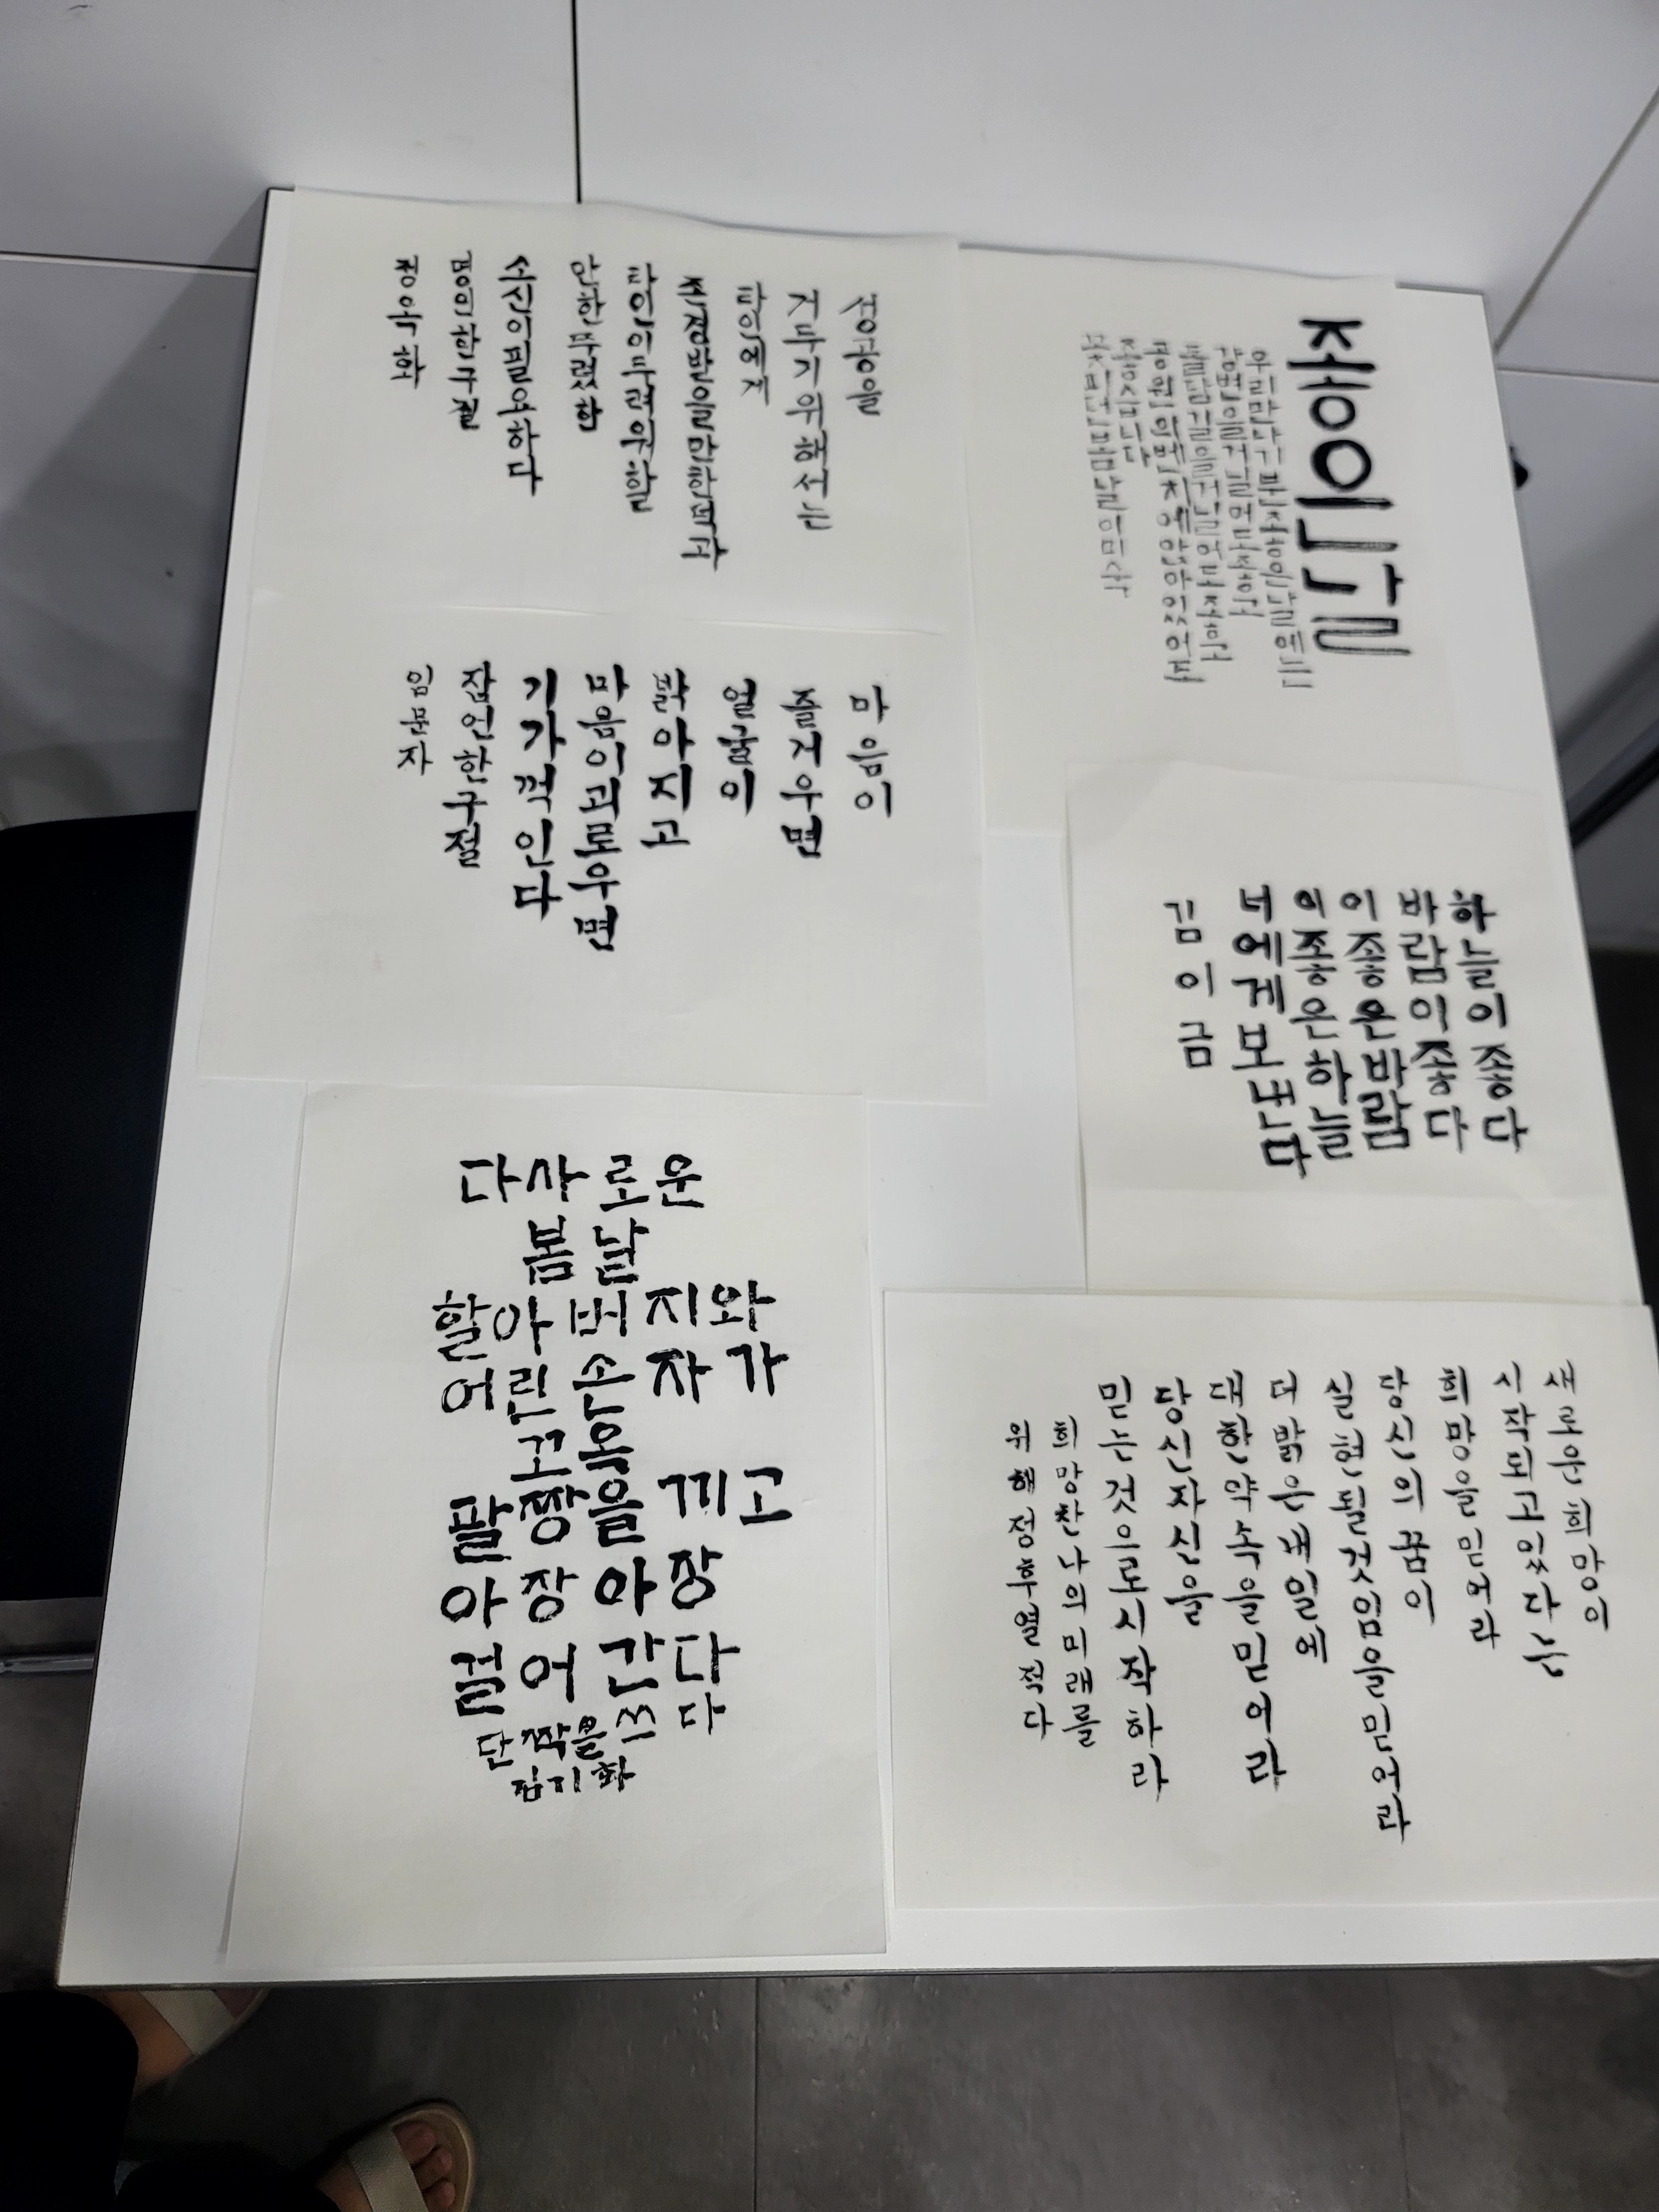 좋은날
우리만나기 부 좋은날에는
강변을거닐어도좋고
돌담길을거닐어도좋고
공원의벤치에앉아있어도
좋습니다
꽃피면봄날의미
성공을
거두기위해서는
타인에게
존경받을만한
타인이두려워할
만한뚜렷한
소신이필요하다
명의한구절
정옥화
마음이
즐거우면
얼굴이
밝아지고
마음이괴로우면
기가꺽인다
잠언한구절
임문자
하늘이좋다
바람이좋다
이좋은바람
이좋은하늘
너에게보낸다
김이금
다사로운
봄날
할아버지와
어린손자가
꼬옥
팔짱을끼고
아장아장
걸어간다
단짝을쓰다
김기화
새로운희망이
시작되고있다는
희망을믿어라
당신의꿈이
실현될것임을믿어라
더밝은내일에
대한약속을믿어라
당신자신을
믿는것으로시작하라
희망찬나의미래를
위해정후열적다